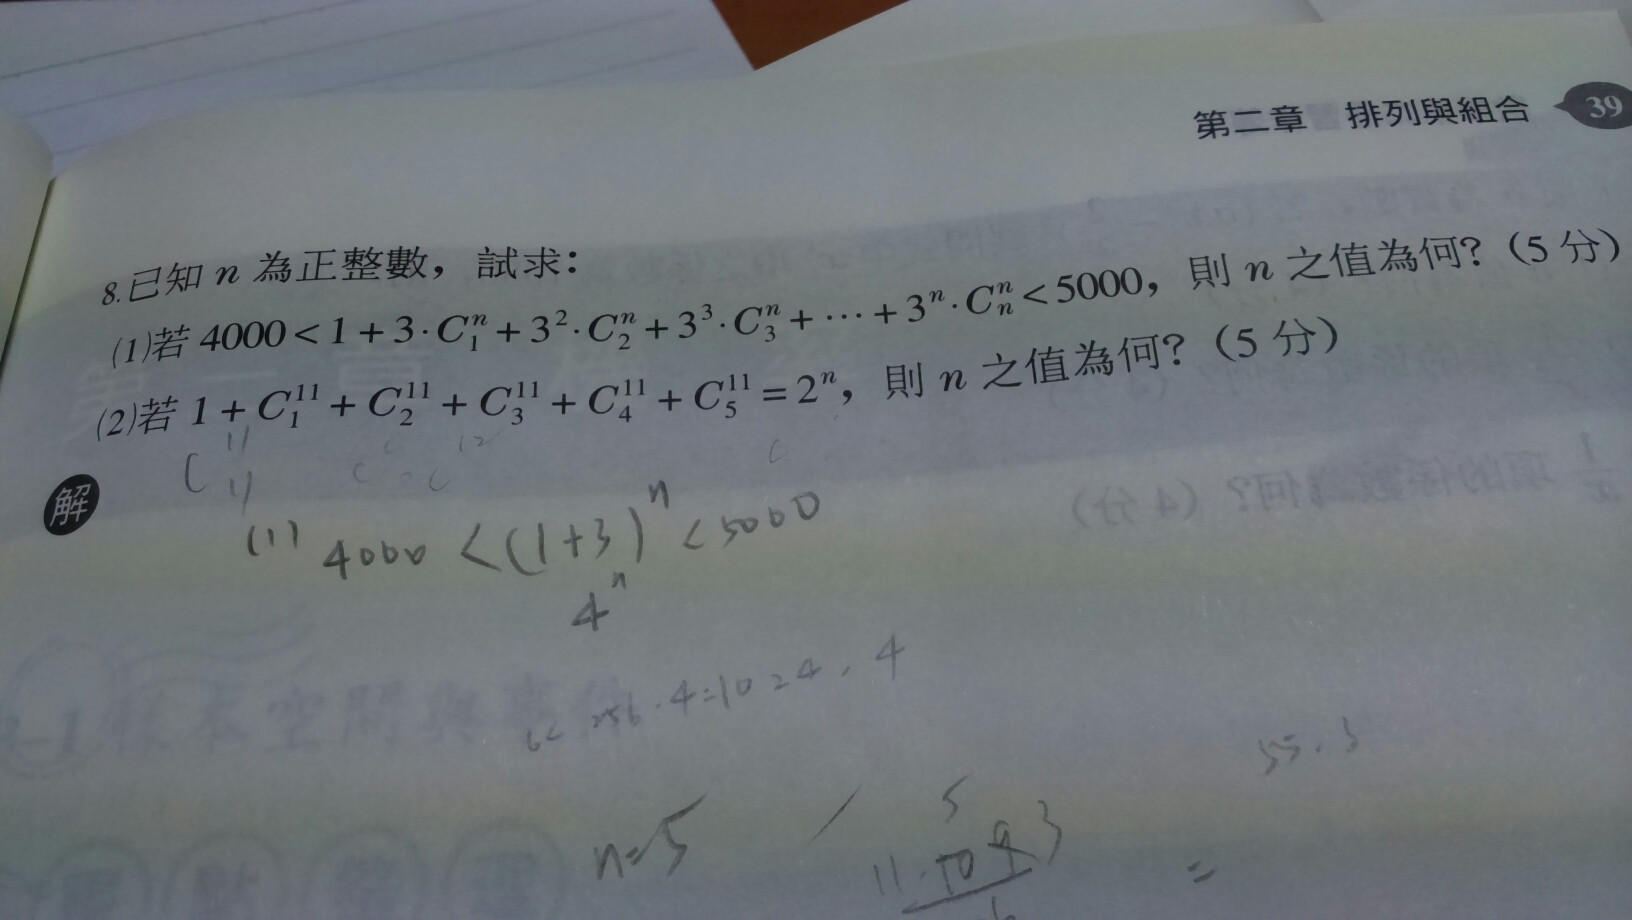 第二章 排列與組合 39
8.已知 n 為正整數，試求：
(1)若 4000 < 1 + 3 · C₁ⁿ + 3² · C₂ⁿ + 3³ · C₃ⁿ + ⋯ + 3ⁿ · Cₙⁿ < 5000，則 n 之值為何？（5 分）
(2)若 1 + C₁¹¹ + C₂¹¹ + C₃¹¹ + C₄¹¹ + C₅¹¹ = 2ⁿ，則 n 之值為何？（5 分）
解
(1) 4000 < (1+3)ⁿ < 5000
4ⁿ
256 · 4 = 1024 · 4
55 · 3
n=5
11 · 10 9 3
=